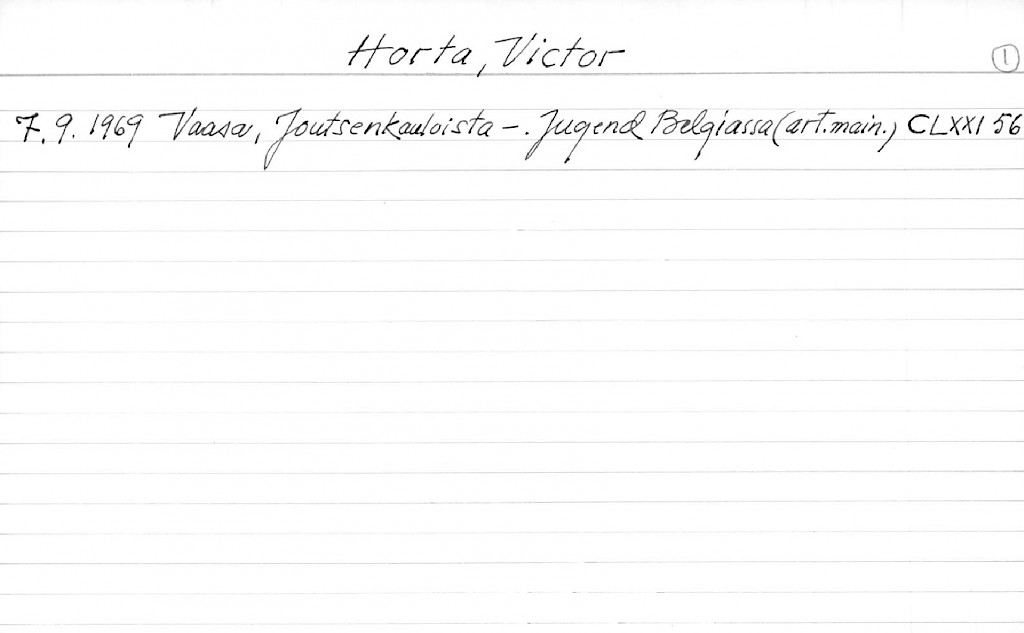 Horta, Victor
1
7.9.1969 Vaasa, Joutsenkauloista -. Jugend Belgiassa (art. main.) CLXXI 56